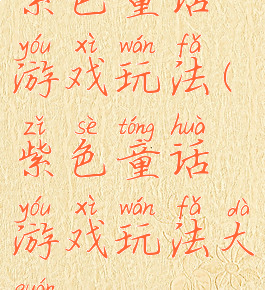 紫色童话
yóu xì wán fǎ
游戏玩法(
zǐ sè tóng huà
紫色童话
yóu xì wán fǎ dà
游戏玩法大
quán